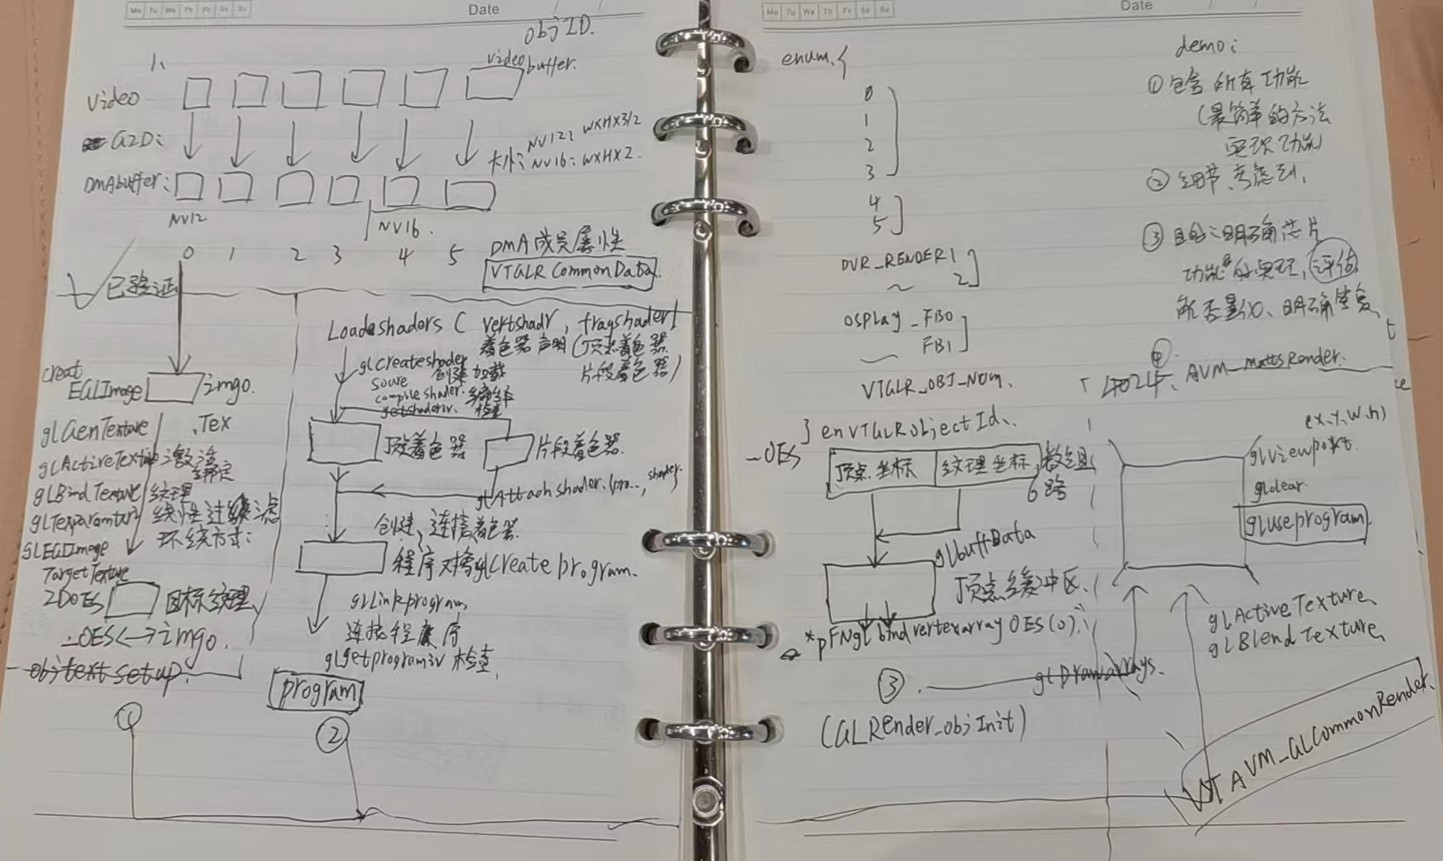 Mo Tu We Th Fr Sa Su
Date
objID.
1、
video buffer.
Video
G2D:
NV12: WXHX3/2
大小: NV16: WXHX2.
DMAbuffer:
NV12
NV16.
0 1 2 3 4 5 DMA成员属性
VTGLR CommonData
已验证
creat
EGLImage imgo.
glGenTexture .Tex
glActiveTexture 激活
绑定
glBindTexture 纹理
glTexparamteri 线性过缘滤
环绕方式:
glEGLImage
TargetTexture
2DOES 目标纹理
_OES<->imgo.
objtext setup.
①
Loadeshaders ( vertshadr, fragshader)
着色器声明(顶点着色器
片段着色器)
glcreateshader 创建 加载
souve
compile shader. 编译
getshaderiv. 检查
顶点着色器
片段着色器.
glAttachshader.(pro.., shader)
创建,连接着色器.
程序对像glcreate program.
glLinkprogram
连接程序
glgetprogramiv 检查.
program
②
Mo Tu We Th Fr Sa Su
Date
enum. {
0
1
2
3
4
5
DVR_RENDER1
~ 2
OSplay_FB0
~ FB1
VTGLR_OBJ_NUM.
} enVTGLRobjectId.
_OES
顶点坐标 纹理坐标 数组
6路
glbuffData
顶点缓冲区.
*pFNglbindvertexarrayOES(0).
③. glDrawarrays.
(GLRender_objInit)
demo:
①包含所有功能
(最简单的方法
实现功能
②细节,考虑到.
③目的:明确芯片
功能的实现,评估
④
AVM_mattsRender.
(x,y,w,h)
glviewport
glclear.
gluseprogram
glActiveTexture
glBlendTexture
VTAVM_GLCommonRender.